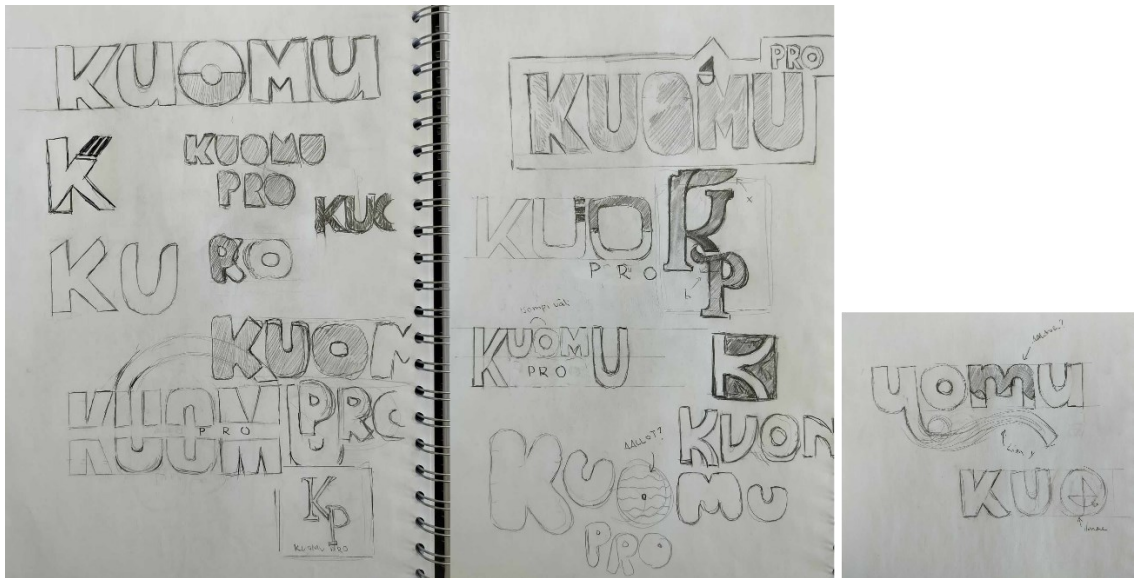 KUOMU
K
KUOMU
PRO
KUO
KU
PRO
KUOM
KUOMU
PRO
PRO
U
KP
KUOMU PRO
PRO
KUOMU
KUO
PRO
KP
x
b
KUOMU
PRO
K
KUOM
AALLOT?
KUOMU
PRO
uomu
KUO